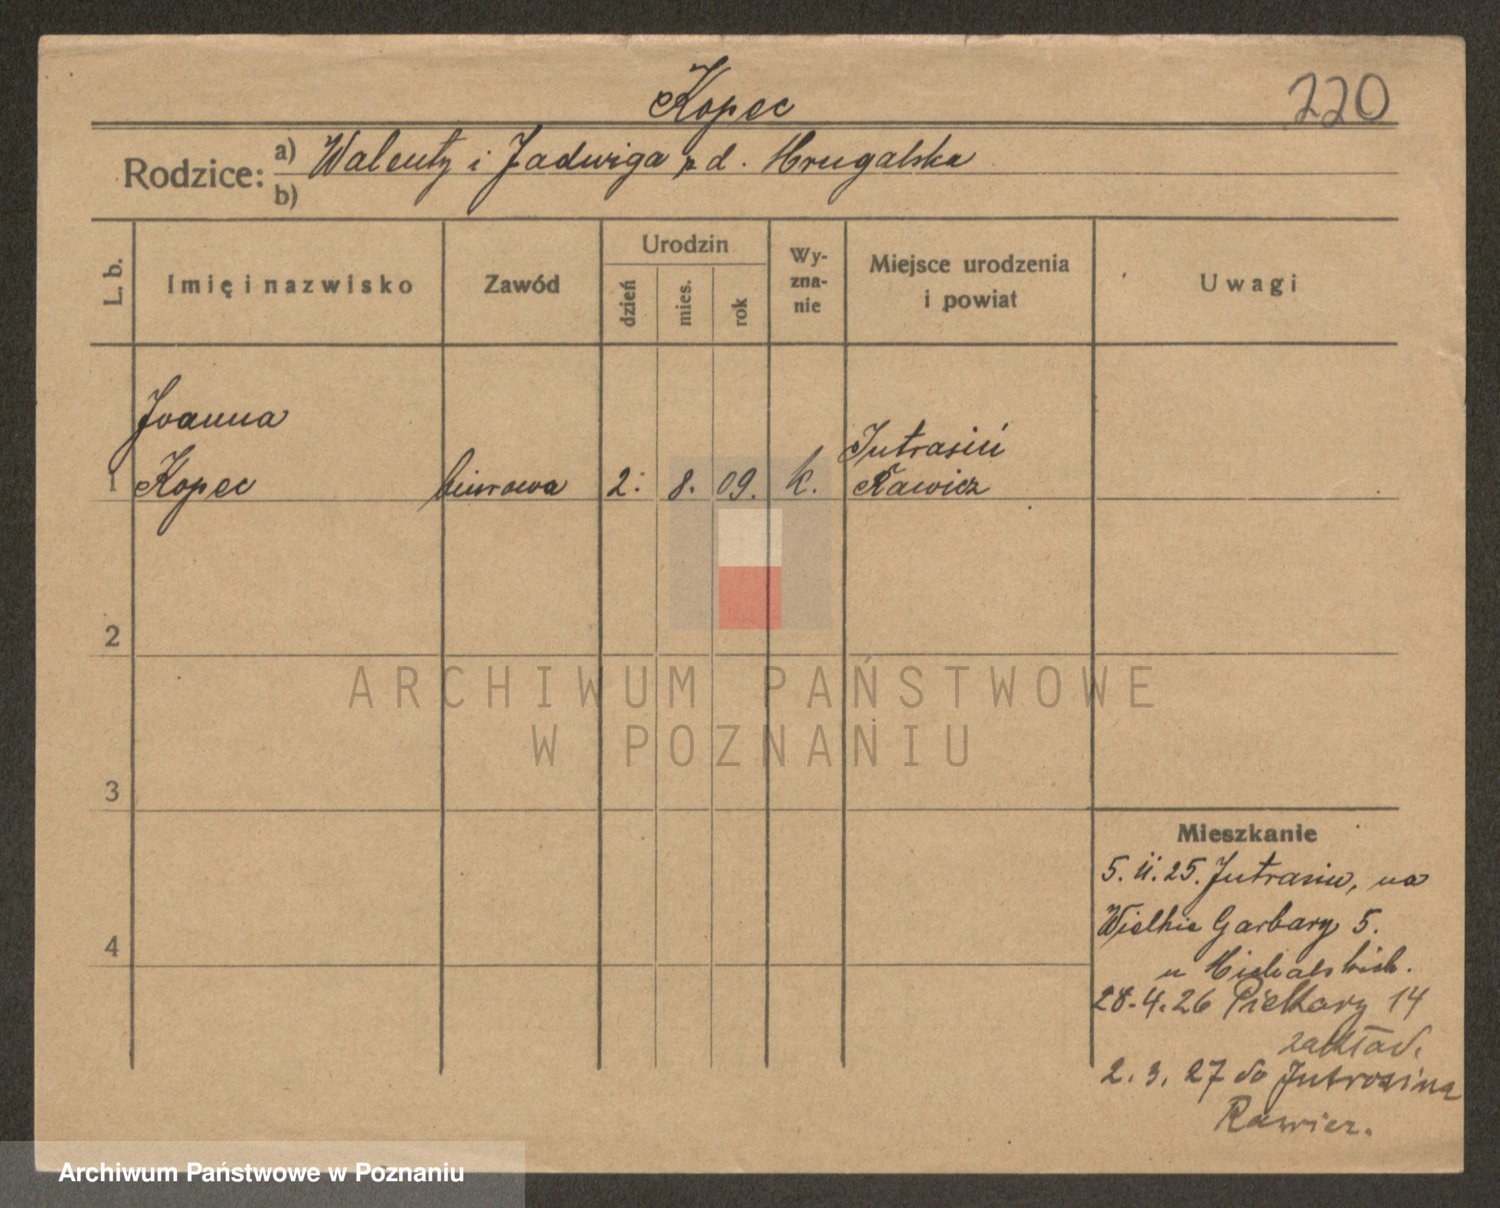 Kopec
220
Rodzice: a) Walenty i Jadwiga z d. Hrugalska
b)
L. b.
Imię i nazwisko
Zawód
Urodzin
dzień
mies.
rok
Wy-
zna-
nie
Miejsce urodzenia
i powiat
Uwagi
Joanna
1 Kopec biurowa 2. 8. 09. k. Jutrasin
Rawicz
2
3
4
ARCHIWUM PAŃSTWOWE
W POZNANIU
Mieszkanie
5. II. 25. Jutrasin, na
Wielkie Garbary 5.
u Michalskich.
28. 4. 26 Piekary 14
zakład.
2. 3. 27 do Jutrosina
Rawicz.
Archiwum Państwowe w Poznaniu